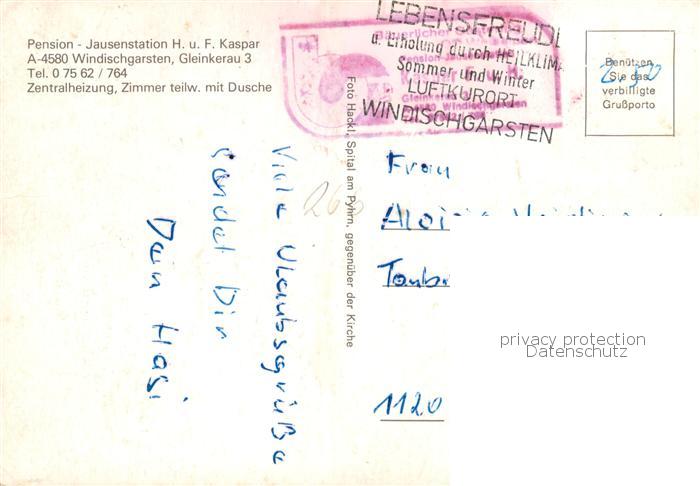 Pension - Jausenstation H. u. F. Kaspar
A-4580 Windischgarsten, Gleinkerau 3
Tel. 0 75 62 / 764
Zentralheizung, Zimmer teilw. mit Dusche
LEBENSFREUDE
u. Erholung durch HEILKLIMA
Sommer und Winter
LUFTKURORT
WINDISCHGARSTEN
Benützen
Sie das
verbilligte
Grußporto
Foto Hackl, Spital am Pyhrn, gegenüber der Kirche
Viele Ulaubsgrüße
sendet Dir
Dein Hasi
260
Frau
Aloi
1120
privacy protection
Datenschutz